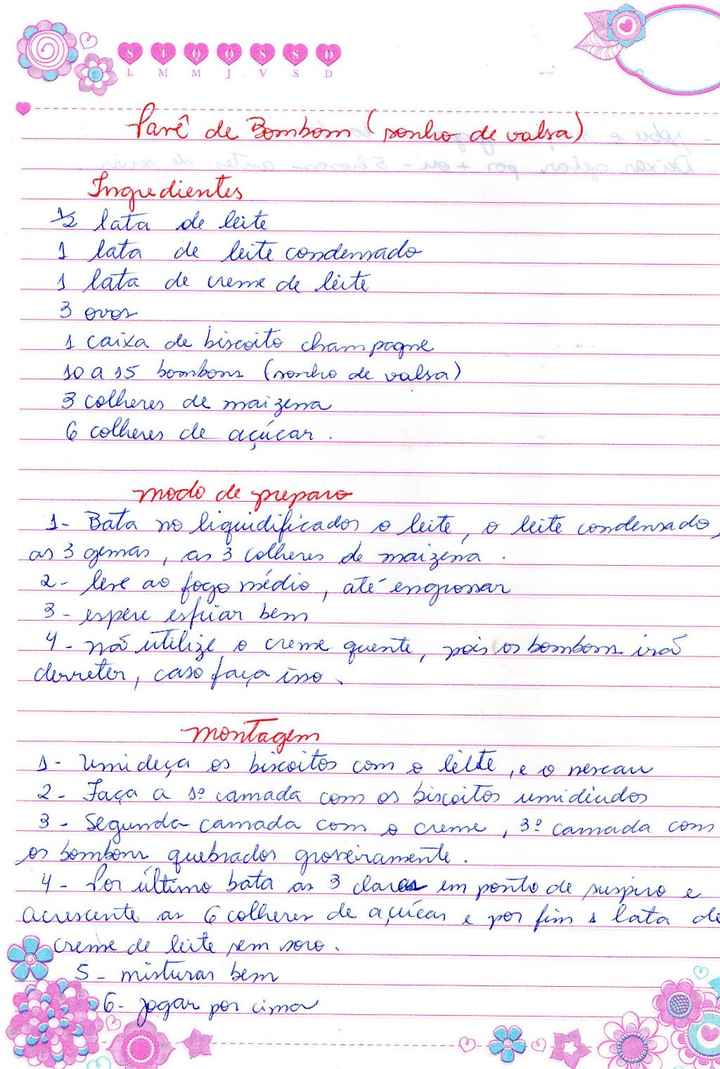 L M M J V S D
Pavê de Bombom (sonho de valsa)
Ingredientes
1/2 lata de leite
1 lata de leite condensado
1 lata de creme de leite
3 ovos
1 caixa de biscoito champagne
10 a 15 bombons (sonho de valsa)
3 colheres de maizena
6 colheres de açúcar.
modo de preparo
1- Bata no liquidificador o leite, o leite condensado,
as 3 gemas, as 3 colheres de maizena.
2- leve ao fogo médio, até engrossar
3- espere esfriar bem
4- não utilize o creme quente, pois os bombom irão
derreter, caso faça isso.
montagem
1- Umideça os biscoitos com o leite, e o nescau
2- Faça a 1º camada com os biscoitos umidecidos
3- Segunda camada com o creme, 3º camada com
os bombons quebrados grosseiramente.
4- Por último bata as 3 claras em ponto de suspiro e
acrescente as 6 colheres de açúcar e por fim 1 lata de
creme de leite sem soro.
5- misturar bem
6- jogar por cima